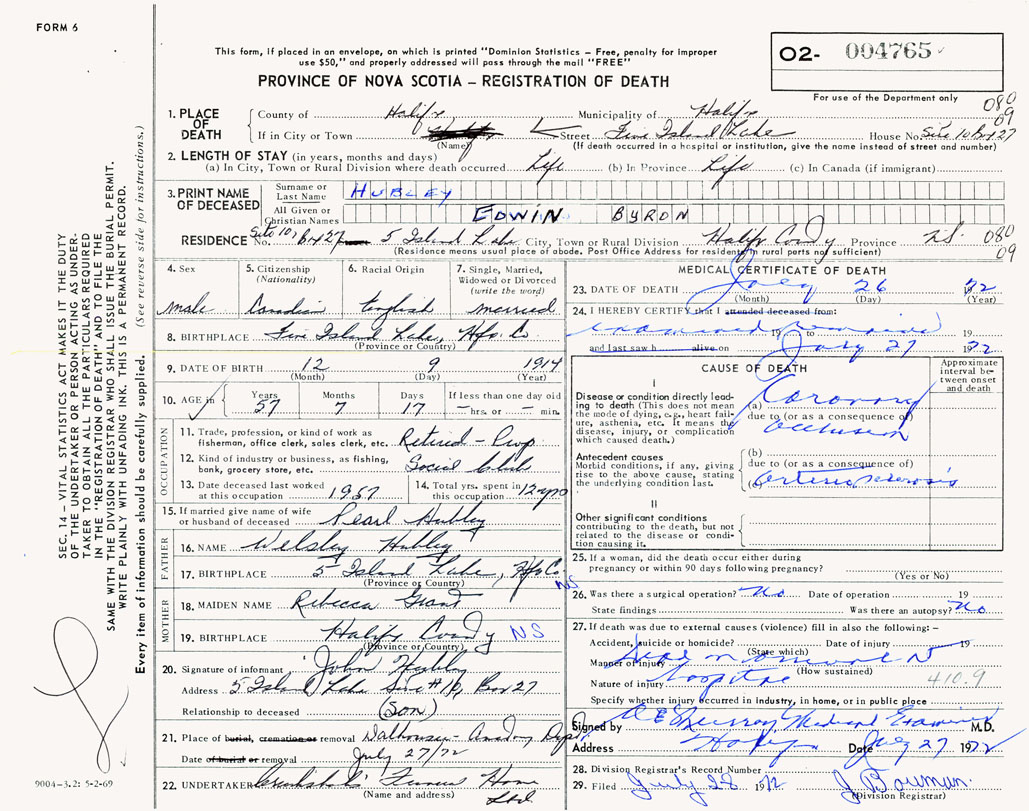 FORM 6
This form, if placed in an envelope, on which is printed "Dominion Statistics – Free, penalty for improper
use $50," and properly addressed will pass through the mail "FREE"
PROVINCE OF NOVA SCOTIA – REGISTRATION OF DEATH
02- 004765
For use of the Department only
080
09
1. PLACE OF DEATH
County of Halifx Municipality of Halifx
If in City or Town Street Five Island Lake House No. Site 10 Box 27
(Name) (If death occurred in a hospital or institution, give the name instead of street and number)
2. LENGTH OF STAY (in years, months and days)
(a) In City, Town or Rural Division where death occurred Life (b) In Province Life (c) In Canada (if immigrant)
3. PRINT NAME OF DECEASED
Surname or Last Name HUBLEY
All Given or Christian Names EDWIN BYRON
RESIDENCE No. Site 10, Box 27 5 Island Lake City, Town or Rural Division Halifx County Province N.S. 080
09
(Residence means usual place of abode. Post Office Address for residents in rural parts not sufficient)
4. Sex 5. Citizenship (Nationality) 6. Racial Origin 7. Single, Married, Widowed or Divorced (write the word)
male Canadian English married
8. BIRTHPLACE Five Island Lake, Hfx. Co
(Province or Country)
9. DATE OF BIRTH 12 9 1914
(Month) (Day) (Year)
10. AGE in Years Months Days If less than one day old
57 7 17 – hrs. or – min.
OCCUPATION
11. Trade, profession, or kind of work as fisherman, office clerk, sales clerk, etc. Retired – Prop
12. Kind of industry or business, as fishing, bank, grocery store, etc. Social Club
13. Date deceased last worked at this occupation 1967
14. Total yrs. spent in this occupation 12 yrs
15. If married give name of wife or husband of deceased Pearl Hubley
FATHER
16. NAME Welsley Hubley
17. BIRTHPLACE 5 Island Lake, Hfx Co. NS
(Province or Country)
MOTHER
18. MAIDEN NAME Rebecca Grant
19. BIRTHPLACE Halifx County NS
(Province or Country)
20. Signature of informant John Hubley
Address 5 Island Lake Site #10, Box 27
Relationship to deceased (Son)
21. Place of burial, cremation or removal Dalhousie Anatomy Dept
Date of burial or removal July 27/72
22. UNDERTAKER Cruikshank's Funeral Home
(Name and address) Ltd.
MEDICAL CERTIFICATE OF DEATH
23. DATE OF DEATH July 26 1972
(Month) (Day) (Year)
24. I HEREBY CERTIFY that I attended deceased from:
examined 19 to 19
and last saw h alive on July 27 1972
CAUSE OF DEATH
Approximate interval between onset and death
I
Disease or condition directly leading to death (This does not mean the mode of dying, e.g., heart failure, asthenia, etc. It means the disease, injury, or complication which caused death.)
(a) Coronary
due to (or as a consequence of)
occlusion
Antecedent causes
Morbid conditions, if any, giving rise to the above cause, stating the underlying condition last.
(b)
due to (or as a consequence of)
(c) arteriosclerosis
II
Other significant conditions contributing to the death, but not related to the disease or condition causing it.
25. If a woman, did the death occur either during pregnancy or within 90 days following pregnancy?
(Yes or No)
26. Was there a surgical operation? No Date of operation 19
State findings Was there an autopsy? No
27. If death was due to external causes (violence) fill in also the following: –
Accident, suicide or homicide? Date of injury 19
(State which)
Manner of injury
(How sustained)
Nature of injury hospital 410.9
Specify whether injury occurred in industry, in home, or in public place
Signed by Medical Examiner M.D.
Address Date July 27 1972
28. Division Registrar's Record Number
29. Filed July 28 1972 J. Bowman
(Division Registrar)
SEC. 14 – VITAL STATISTICS ACT MAKES IT THE DUTY
OF THE UNDERTAKER OR PERSON ACTING AS UNDER-
TAKER TO OBTAIN ALL THE PARTICULARS REQUIRED
IN THE "REGISTRATION OF DEATH" AND TO FILE THE
SAME WITH THE DIVISION REGISTRAR WHO SHALL ISSUE THE BURIAL PERMIT.
WRITE PLAINLY WITH UNFADING INK. THIS IS A PERMANENT RECORD.
Every item of information should be carefully supplied. (See reverse side for instructions.)
9004-3.2: 5-2-69